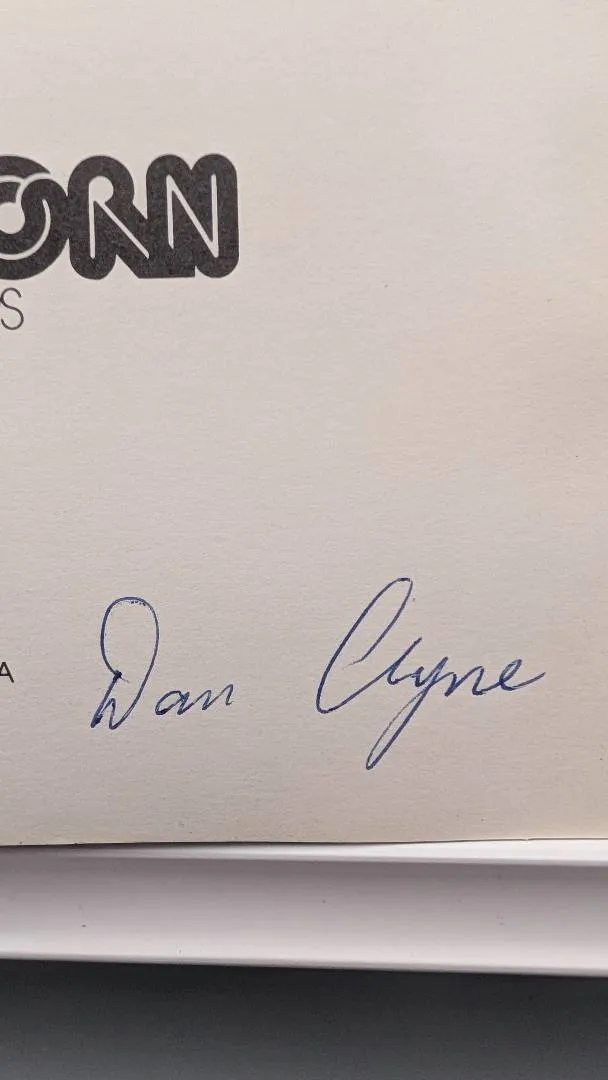 ORN
S
A
Dan Clyne